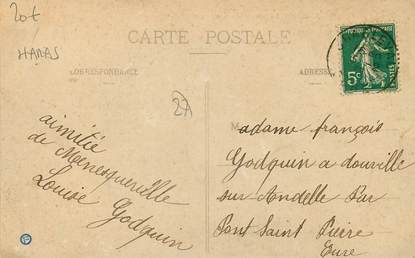 20t
HARAS
CARTE POSTALE
CORRESPONDANCE
ADRESSE
5c
27
aimitié
de Menesqueville
Louise Godquin
Madame françois
Godquin a douville
sur Andelle Par
Pont Saint Pierre
Eure